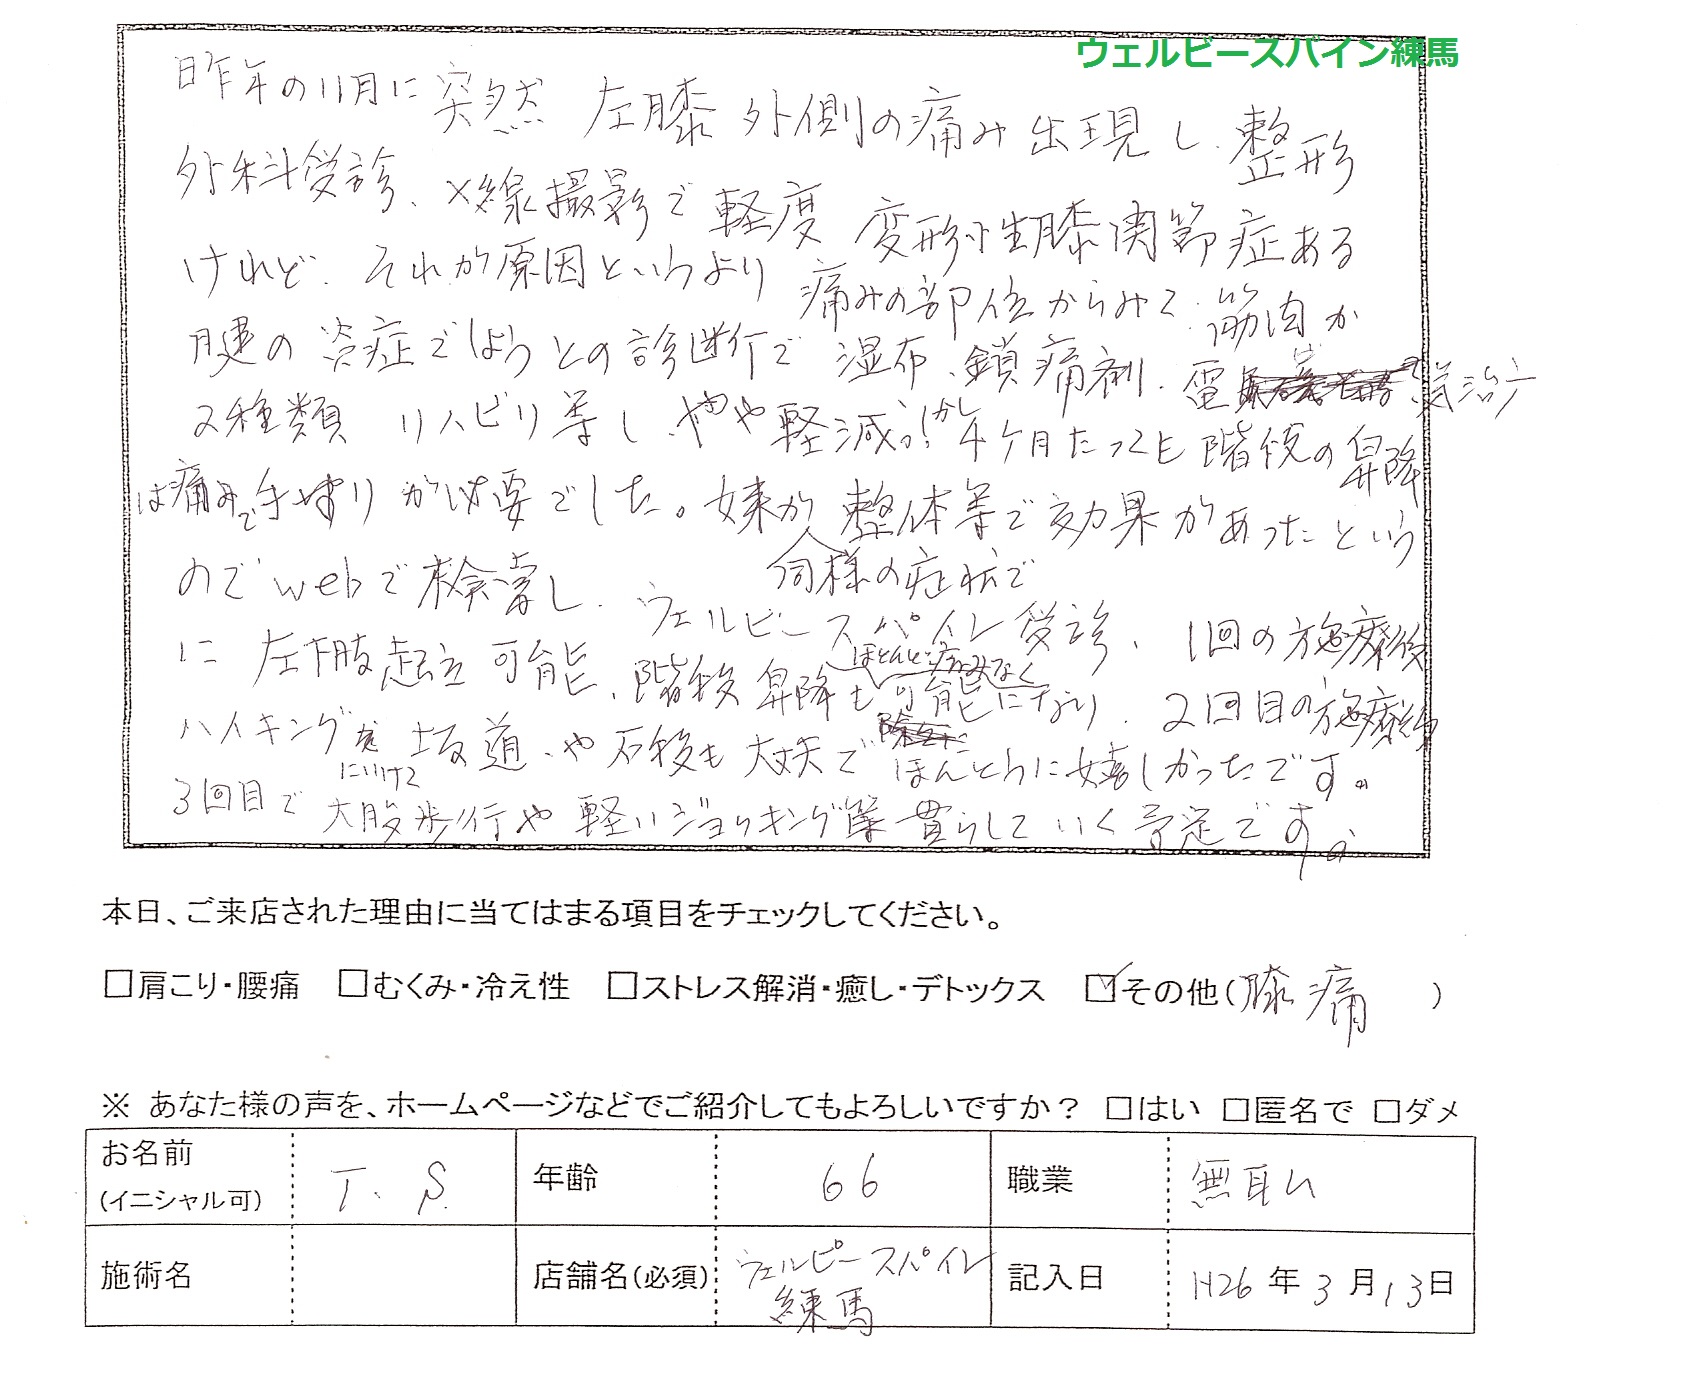 ウェルビースパイン練馬
昨年の11月に突然 左膝 外側の痛み出現し、整形
外科受診、X線撮影で軽度 変形性膝関節症ある
けれど、それが原因というより 痛みの部位からみて、筋肉か
腱の炎症でしょうとの診断で 湿布、鎮痛剤、電気治療
2種類 リハビリ等し、やや軽減。しかし4ケ月たっても階段の昇降
は痛みで手すりが必要でした。妹が同様の症状で整体等で効果があったという
のでwebで検索し、ウェルビースパイン受診、1回の施療後
に 左下肢起立可能、階段昇降もほとんど痛みなく可能になり、2回目の施療後
ハイキング 坂道、や石段も大丈夫でほんとうに嬉しかったです。
3回目で にいけて 大股歩行や軽いジョッキング等 貫らしていく予定です。
本日、ご来店された理由に当てはまる項目をチェックしてください。
□肩こり・腰痛 □むくみ・冷え性 □ストレス解消・癒し・デトックス ☑その他(膝痛)
※ あなた様の声を、ホームページなどでご紹介してもよろしいですか？ □はい □匿名で □ダメ
お名前 (イニシャル可) T. S. 年齢 66 職業 無職
施術名 店舗名(必須) ウェルビースパイン練馬 記入日 H26年3月13日